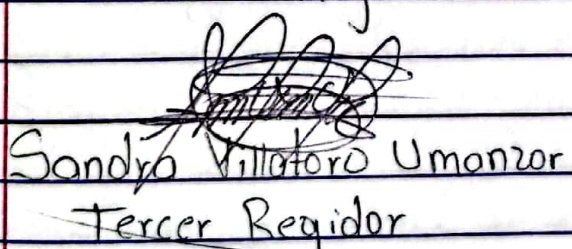 Sandra Villatoro Umanzor
Tercer Regidor